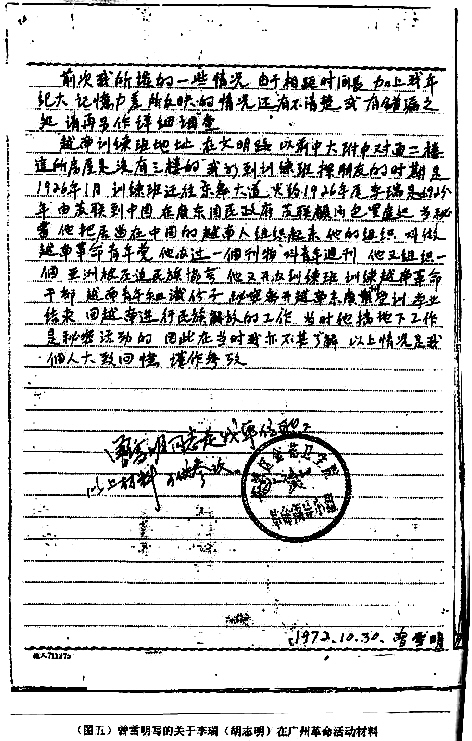 前次我所谈的一些情况 由于相距时间长 加上我年
纪大 记憶力差 所反映的情况 还有不清楚 或有錯漏之
处 请再另作详细調查
越南训练班地址 在文明路 以前中大附中对面二楼
這所房屋是没有三楼的 我们到训练班探朋友的时期是
1926年1月 训练班迁往东皋大道 大约1926年尾 李瑞是1925
年由苏联到中国 在广东国民政府苏联顧问 当秘
書 他把居留在中国的越南人组织起来 他的组织 叫做
越南革命青年党 他办过一個刊物 叫青年週刊 他又组织一
個亚洲被压迫民族協会 他又开办训练班 训练越南革命
干部 越南青年知識份子 秘密离开越南来广 受训 毕业
後 回越南進行民族解放的工作 当时他搞地下工作
是秘密活动的 因此在当时我亦不甚了解 以上情况是我
個人大致回憶 僅作参攷
曾雪明同志是我单位
以上材料 可供参攷
革命領导小組
1972.10.30. 曾雪明
(图五) 曾雪明写的关于李瑞 (胡志明) 在广州革命活动材料